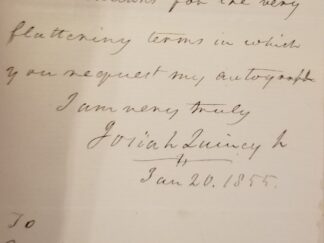 for the very
flattering terms in which
you request my autograph
I am very truly
Josiah Quincy Jr
Jan 20. 1855.
To